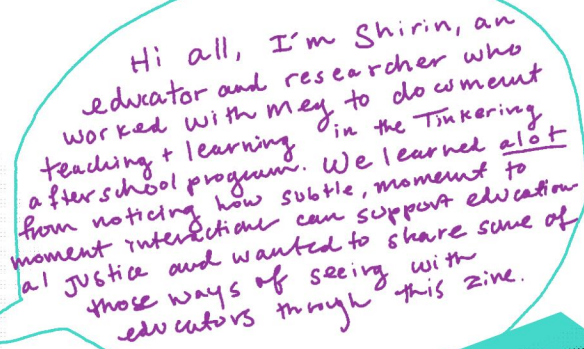 Hi all, I'm Shirin, an
educator and researcher who
worked with Meg to document
teaching + learning in the Tinkering
afterschool program. We learned alot
from noticing how subtle, moment to
moment interactions can support education
al justice and wanted to share some of
those ways of seeing with
educators through this zine.